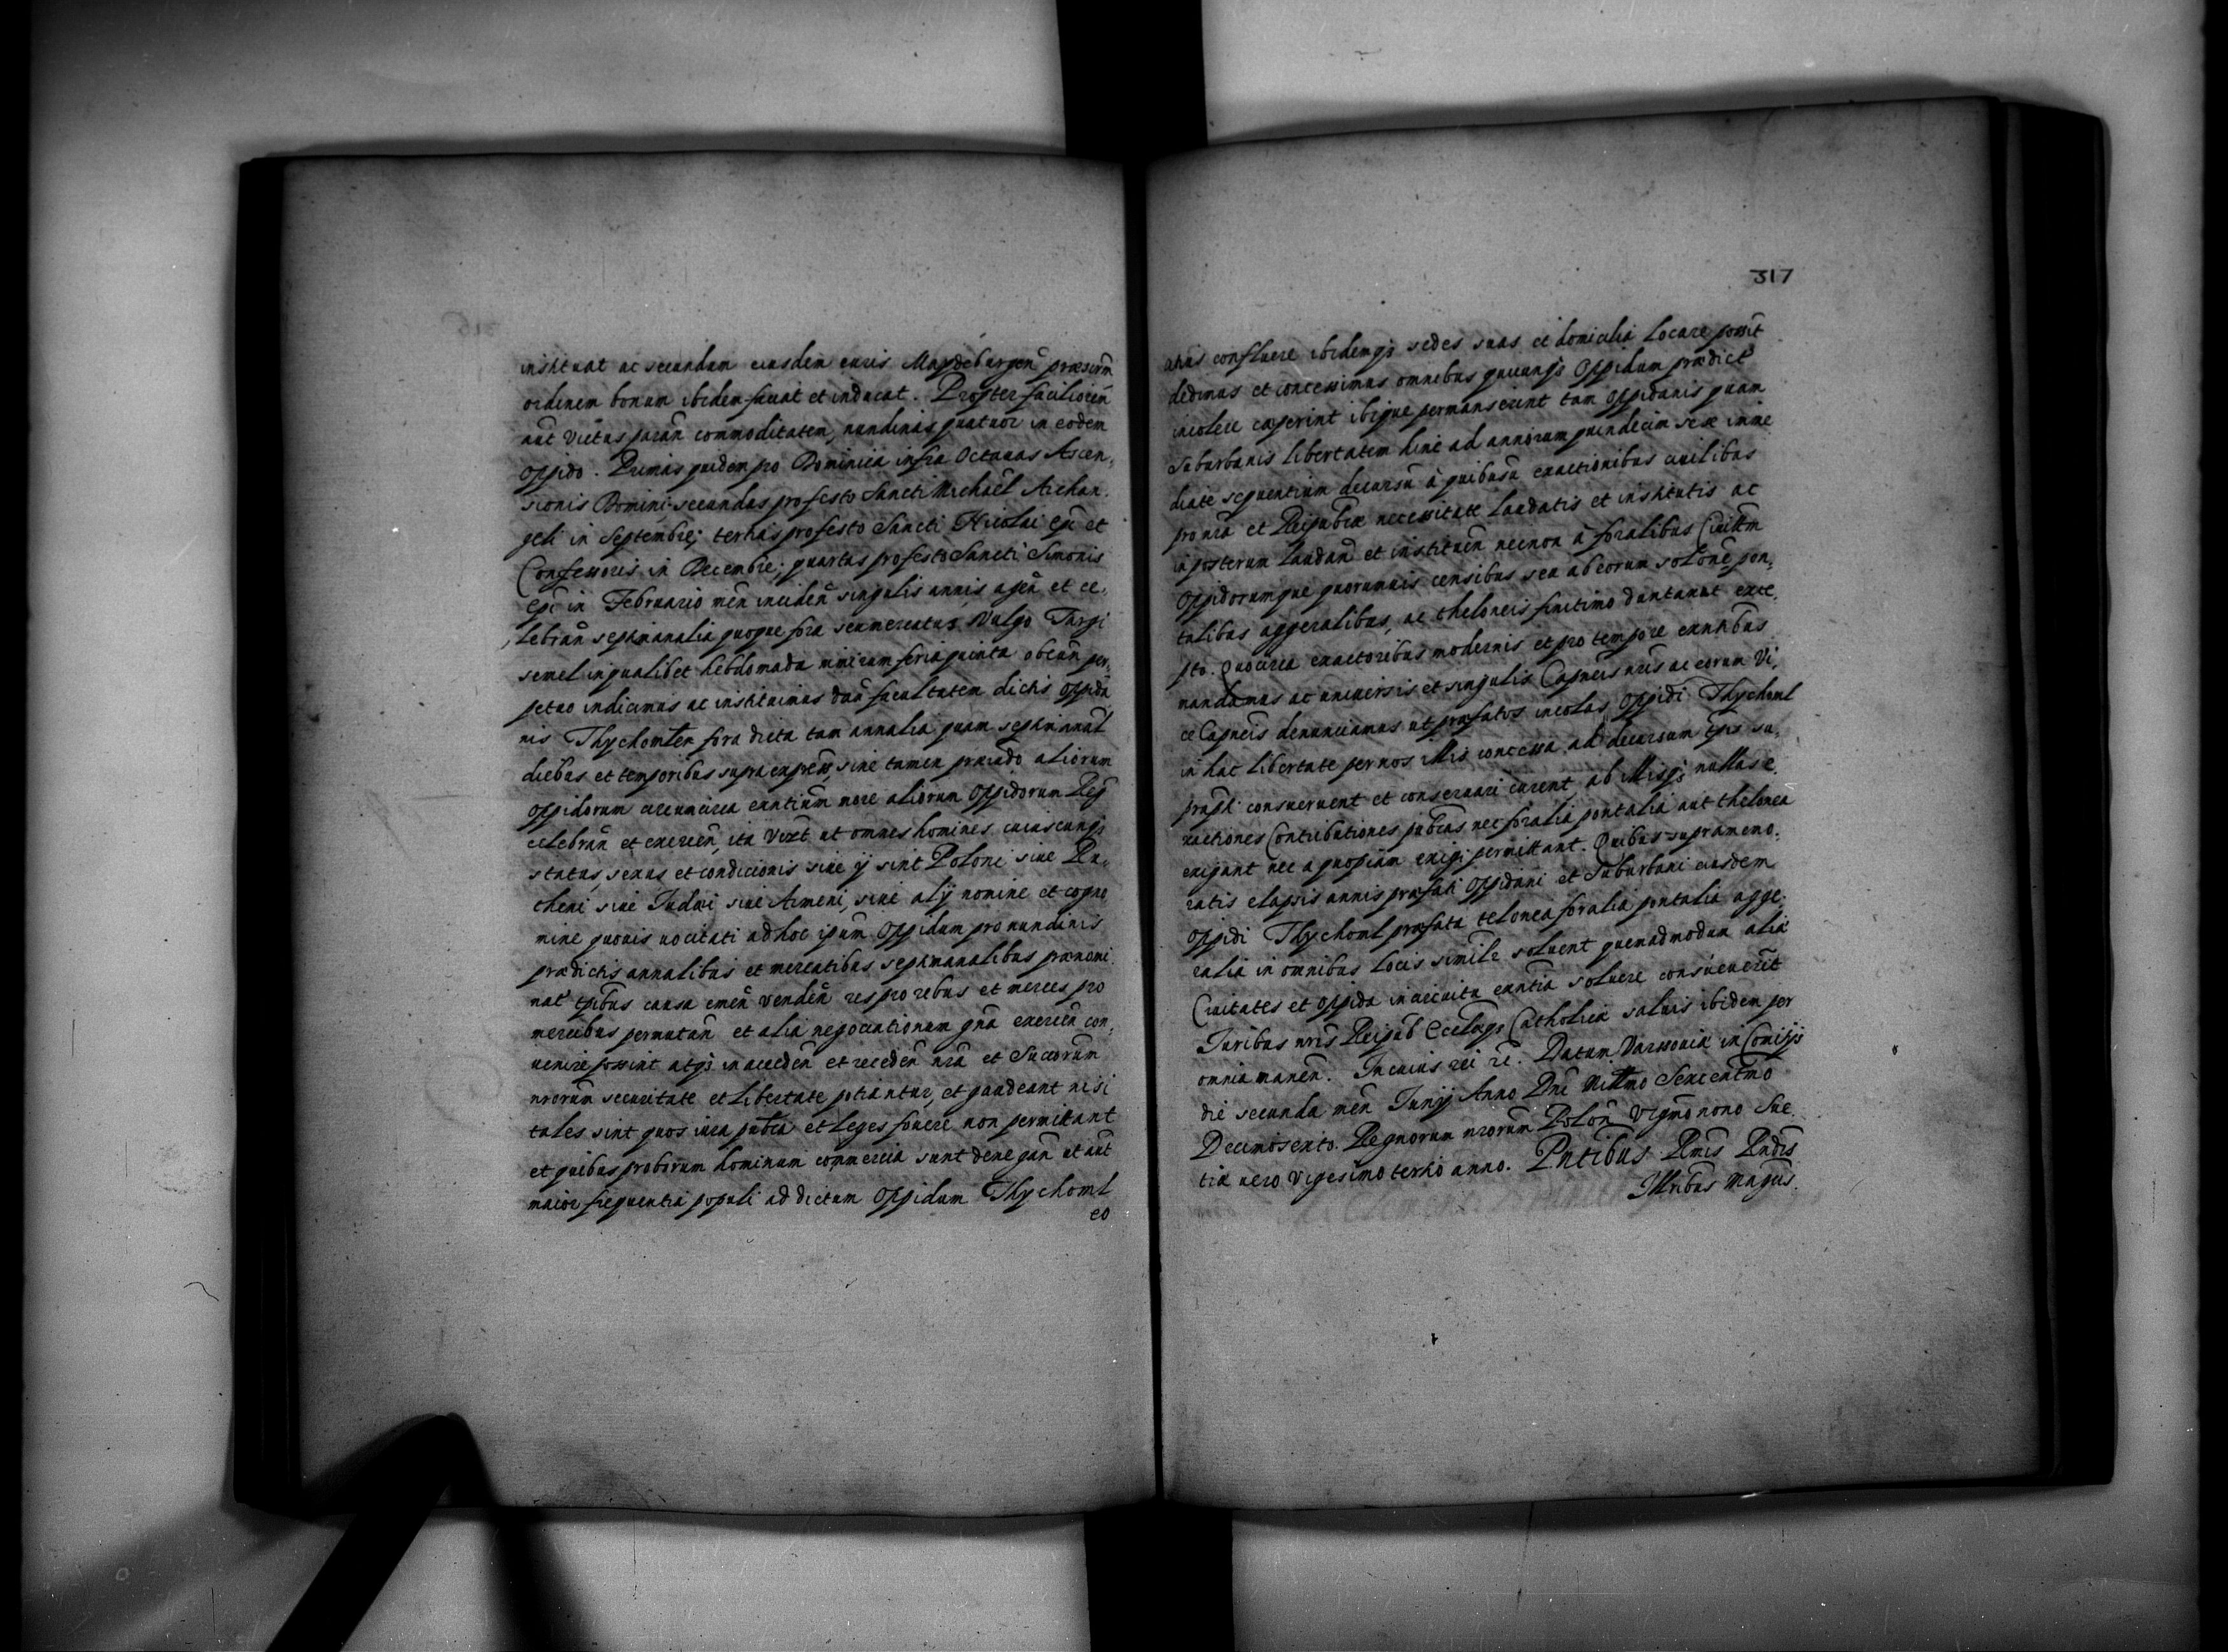 instituat ac secundum eiusdem iuris Maydeburgeñ præscrm̃
ordinem bonum ibidem faciat et inducat. Propter faciliorem̃
aut̃ victus parañ commoditatem, nundinas quatuor in eodem
oppido. Primas quidem pro Dominica infra Octauas Ascen,
sionis Domini secundas pro festo Sancti Michael Archan,
geli in Septembre; tertias pro festo Sancti Nicolai Epi et
Confessoris in Decembre; quartas pro festo Sancti Simonis
Epi in Februario meñ incideñ singulis annis ageñ et ce,
lebrañ septimanalia quoque fora seu mercatus, vulgo Targi
semel in qualibet hebdomada nimirum feria quinta obeuñ per,
petuo indicimus ac instituimus dañ facultatem dictis oppida
nis Thychomlen fora dicta tam annalia quam septimanal
diebus et temporibus supra express, sine tamen præiud̃o aliorum
oppidorum circumcirca exntium more aliorum Oppidorum Reg
celebrañ et exerceñ, ita vizt ut omnes homines cuiuscunqȝ
status, sexus et condicionis siue ij sint Poloni siue Ru,
theni siue Iudæi siue Armeni, siue alij nomine et cogno
mine quouis uocitati ad hoc ipsum Oppidum pro nundinis
prædictis annalibus et mercatibus septimanalibus prænomi
nat̃ tpibus causa emeñ vendeñ res pro rebus et merces pro
mercibus permutañ et alia negociationum gña exerceñ con,
uenire possint atqȝ in accedeñ et recedeñ nrã et Succorum
nrorum securitate et libertate potiantur, et gaudeant nisi
tales sint quos iura publica et leges fouere non permittant
et quibus proborum hominum commercia sunt denegañ ut aut̃
maior frequentia populi ad dictum Oppidum Thychoml
eo
317
atius confluere ibidemqȝ sedes suas et domicilia locare possit
dedimus et concessimus omnibus quicunqȝ Oppidum prædict̃
incolere cæperint ibique permanserint tam Oppidanis quam
Suburbanis libertatem hinc ad annorum quindecim se se imme
diate sequentium decursũ à quibusũ exactionibus ciuilibus
pro nrã et Reipublicæ necessitate laudatis et institutis ac
inposterum laudand et instituen necnon à foralibus Ciuitm̃
Oppidorumque quorumuis censibus seu ab eorum solone pon,
talibus aggeralibus, ac theloneis finitimo duntaxat exce,
pto. Quocirca exactoribus modernis et pro tempore exntibus
mandamus ac uniuersis et singulis Capneis nris ac eorum Vi,
ce Capneis denunciamus ut præfatos incolas Oppidi Thychoml
in hac libertate per nos illis concessa ad decursum tpis su,
prãpt consueruent et conseruari curent, ab illisqȝ nullas e,
xactiones Contributiones publicas nec foralia pontalia aut thelonea
exigant nec a quopiam exigi permittant. Quibus supramemo,
ratis elapsis annis præfati Oppidani et Suburbani eiusdem
oppidi Thychoml præfata telonea foralia pontalia agge,
ralia in omnibus locis simile soluent quemadmodum alia
Ciuitates et oppida in uicinita exntia soluere consueuerũt
Iuribus nris Reipub Ecclaeqȝ Catholicæ saluis ibidem per
omnia maneñ. In cuius rei rc. Datum Varssouiæ in Comitijs
die secunda meñ Iunij Anno Dni Millmo Sexcentmo
Decimosexto. Regnorum nrorum Poloñ Vigmo nono Sue
tiæ uero vigesimo tertio anno. Pntibus Rmis Rndis
Illribus Magcis.